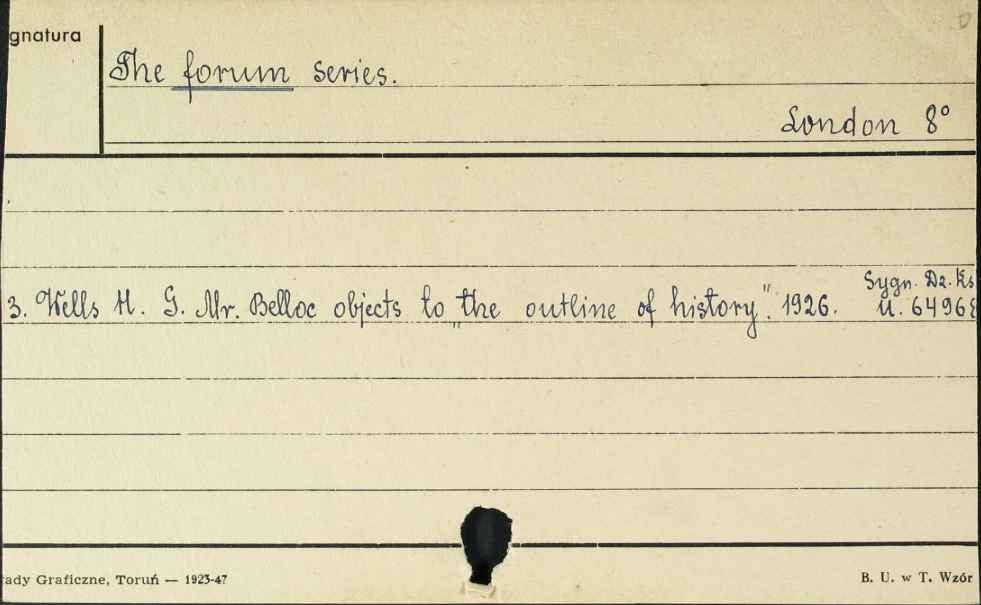 gnatura
The forum series.
London 8°
Sygn. Dz. Ks
3. Wells H. G. Mr. Belloc objects to „the outline of history". 1926. U. 6496
ady Graficzne, Toruń — 1923-47
B. U. w T. Wzór